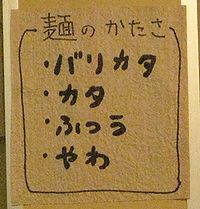 麺のかたさ
・バリカタ
・カタ
・ふつう
・やわ